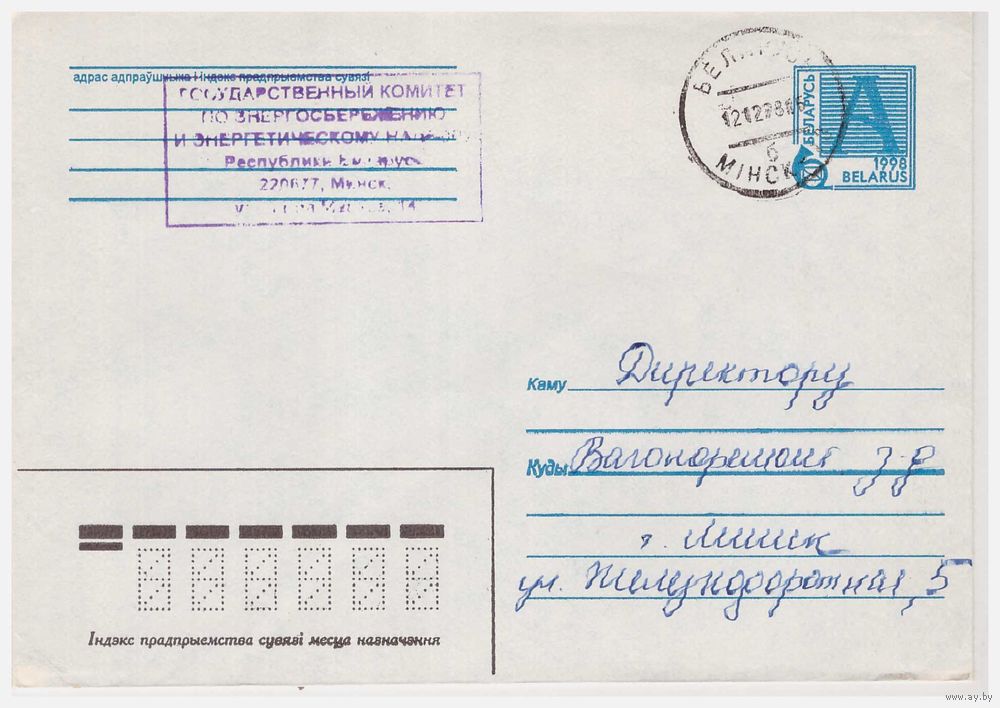 адрас адпраўшчыка і індэкс прадпрыемства сувязі
ГОСУДАРСТВЕННЫЙ КОМИТЕТ
ПО ЭНЕРГОСБЕРЕЖЕНИЮ
И ЭНЕРГЕТИЧЕСКОМУ
Республики
Минск,
МІНСК
БЕЛАРУСЬ
А
1998
BELARUS
Каму Директору
Куды Вагоноремонт. з-д
г. Минск
ул. Железнодорожная, 5
Індэкс прадпрыемства сувязі месца назначэння
www.ay.by